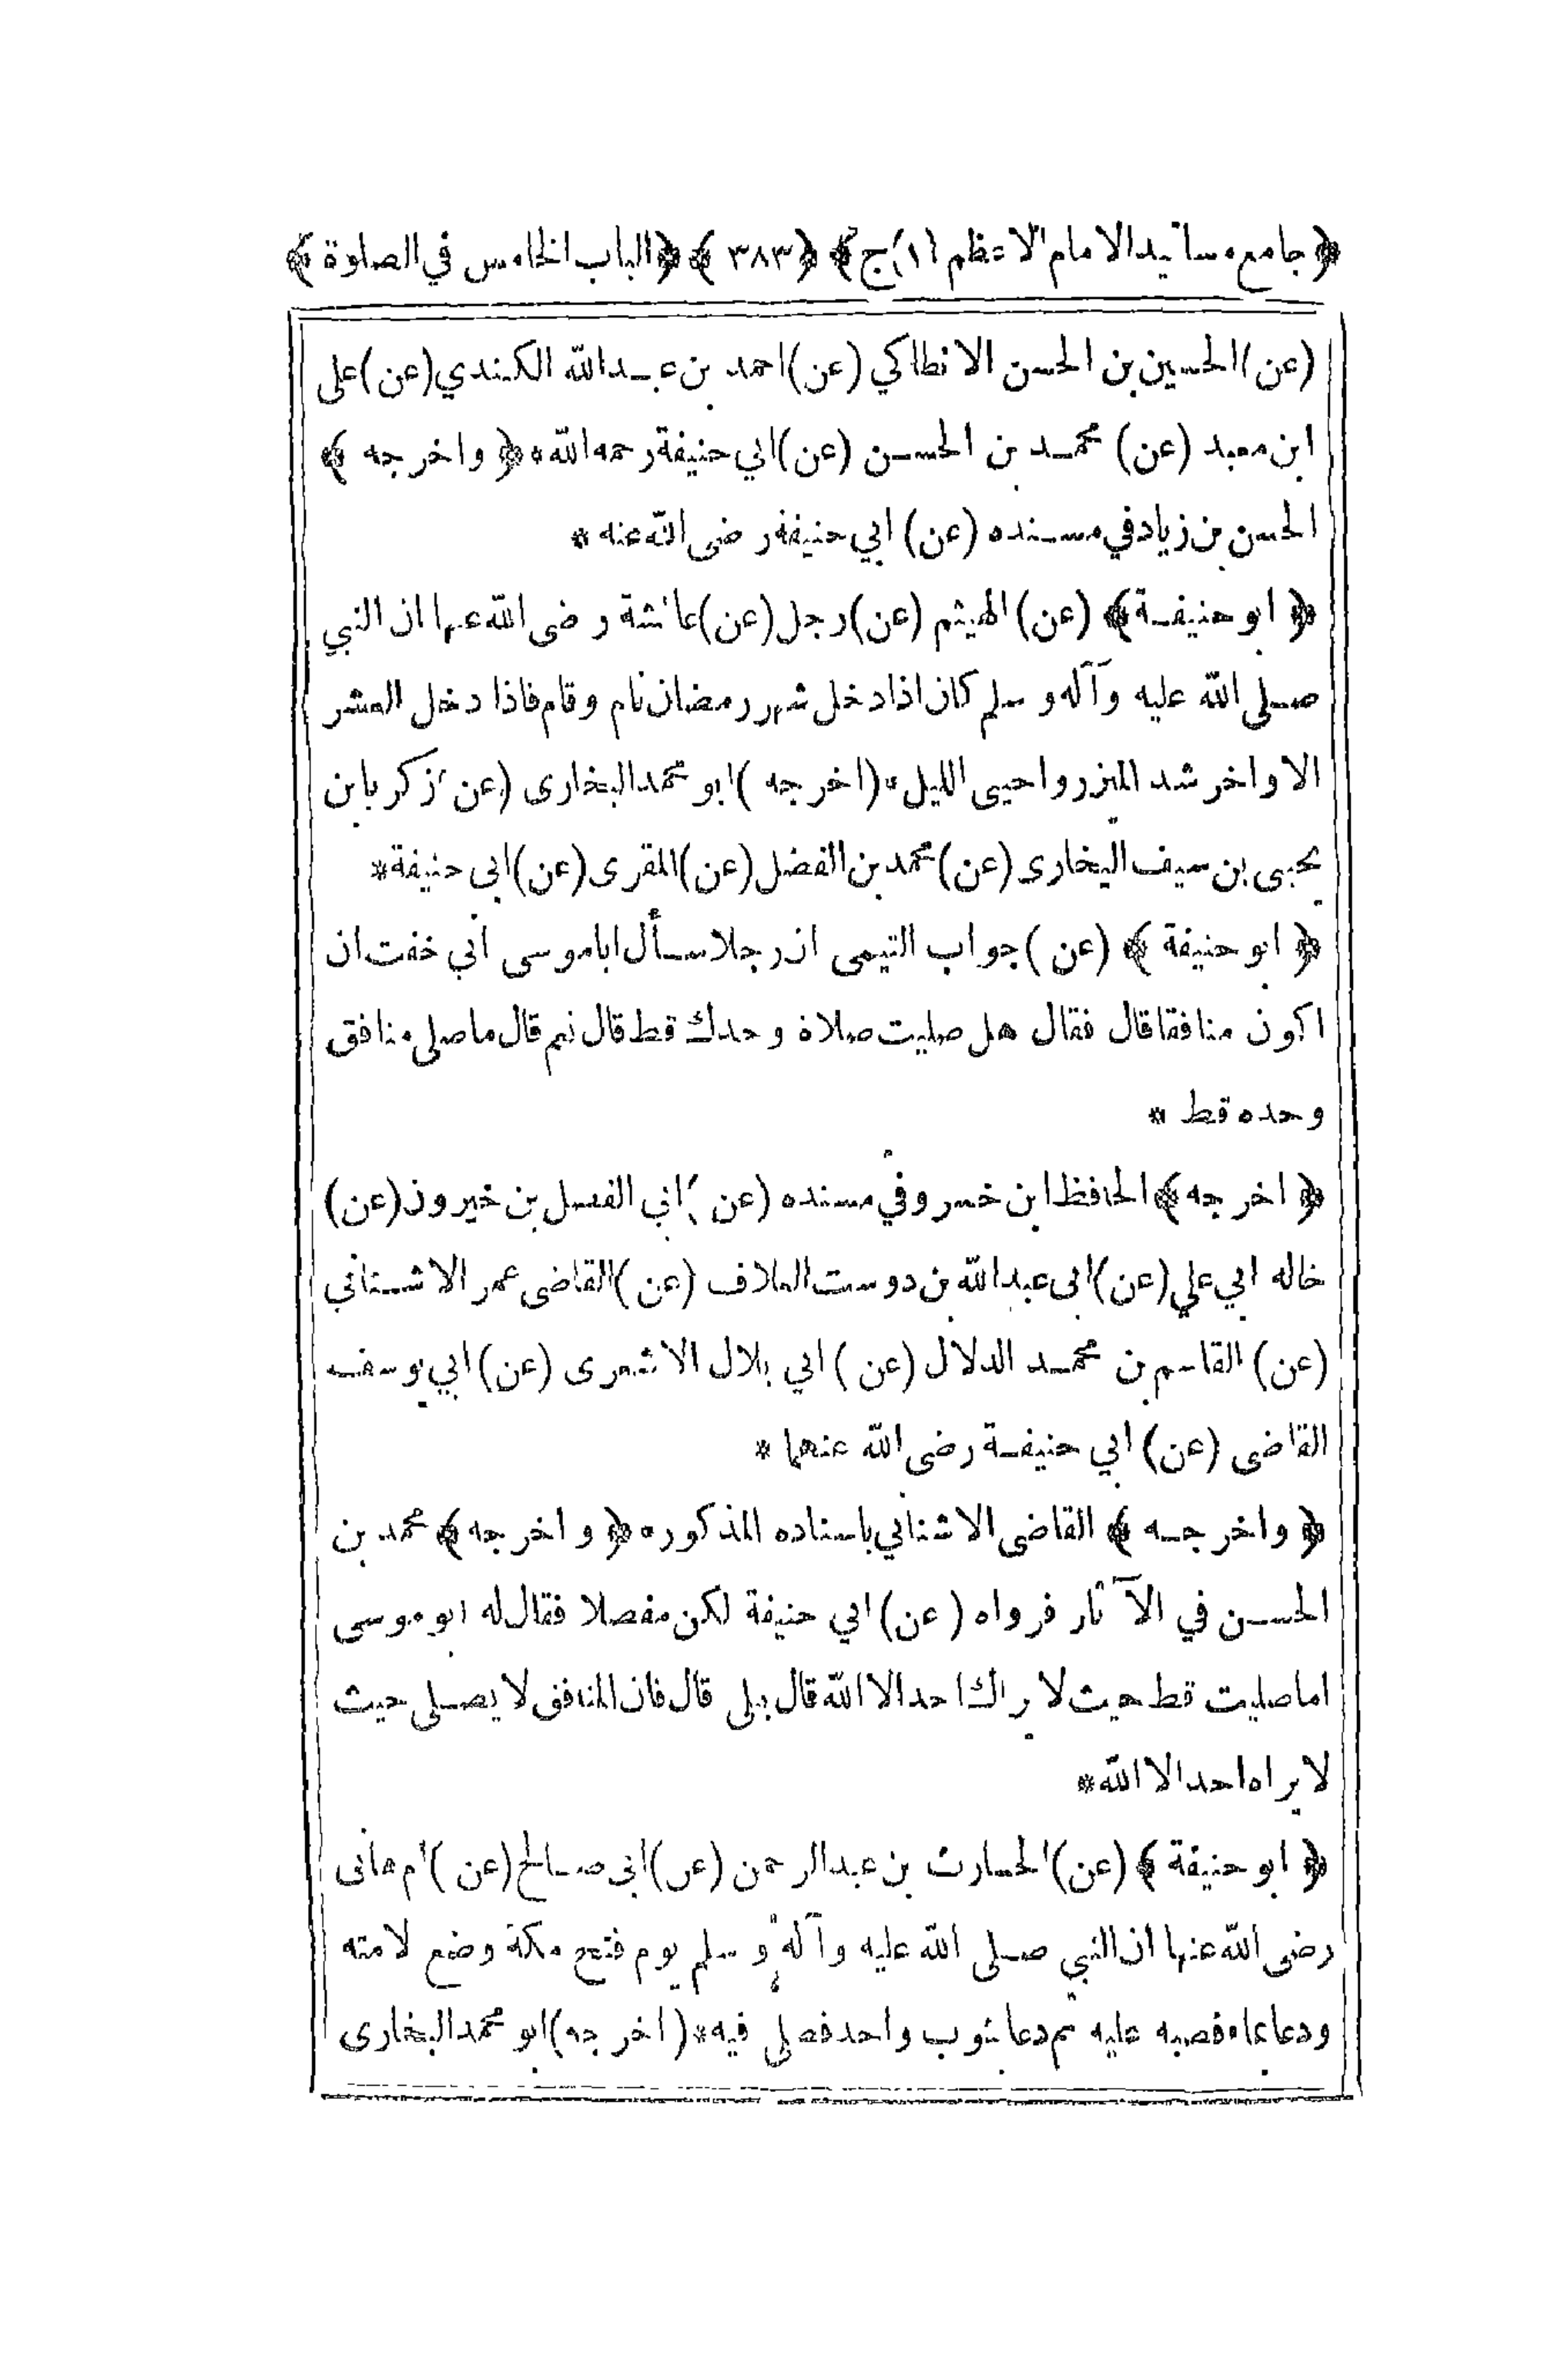 ﴿ جامع مسانيد الامام الاعظم (١) ج ﴾ ﴿ ٣٨٣ ﴾ ﴿ الباب الخامس في الصلوة ﴾
(عن) الحسين بن الحسن الانطاكي (عن) احمد بن عبد الله الكندي (عن) على
ابن معبد (عن) محمد بن الحسن (عن) ابي حنيفة رحمه الله * ﴿ واخرجه ﴾
الحسن بن زياد في مسنده (عن) ابي حنيفة رضى الله عنه *
﴿ ابو حنيفة ﴾ (عن) الهيثم (عن) رجل (عن) عائشة رضى الله عنها ان النبي
صلى الله عليه وآله وسلم كان اذا دخل شهر رمضان نام وقام فاذا دخل العشر
الاواخر شد المئزر واحيى الليل * (اخرجه) ابو محمد البخارى (عن) زكريا بن
يحيى بن سيف البخارى (عن) محمد بن الفضل (عن) المقرى (عن) ابى حنيفة *
﴿ ابو حنيفة ﴾ (عن) جواب التيمى ان رجلا سأل اباموسى اني خفت ان
اكون منافقا قال فقال هل صليت صلاة وحدك قط قال نعم قال ما صلى منافق
وحده قط *
﴿ اخرجه ﴾ الحافظ ابن خسرو في مسنده (عن) ابي الفضل بن خيرون (عن)
خاله ابي علي (عن) ابى عبد الله بن دوست العلاف (عن) القاضى عمر الاشناني
(عن) القاسم بن محمد الدلال (عن) ابي بلال الاشعرى (عن) ابي يوسف
القاضى (عن) ابي حنيفة رضى الله عنهما *
﴿ واخرجه ﴾ القاضى الاشناني باسناده المذكور * ﴿ واخرجه ﴾ محمد بن
الحسن في الآثار فرواه (عن) ابي حنيفة لكن مفصلا فقال له ابو موسى
اما صليت قط حيث لا يراك احد الا الله قال بلى قال فان المنافق لا يصلى حيث
لا يراه احد الا الله *
﴿ ابو حنيفة ﴾ (عن) الحارث بن عبد الرحمن (عن) ابى صالح (عن) ام هانى
رضى الله عنها ان النبي صلى الله عليه وآله وسلم يوم فتح مكة وضع لامته
ودعا بماء فصبه عليه ثم دعا بثوب واحد فصلى فيه * (اخرجه) ابو محمد البخارى